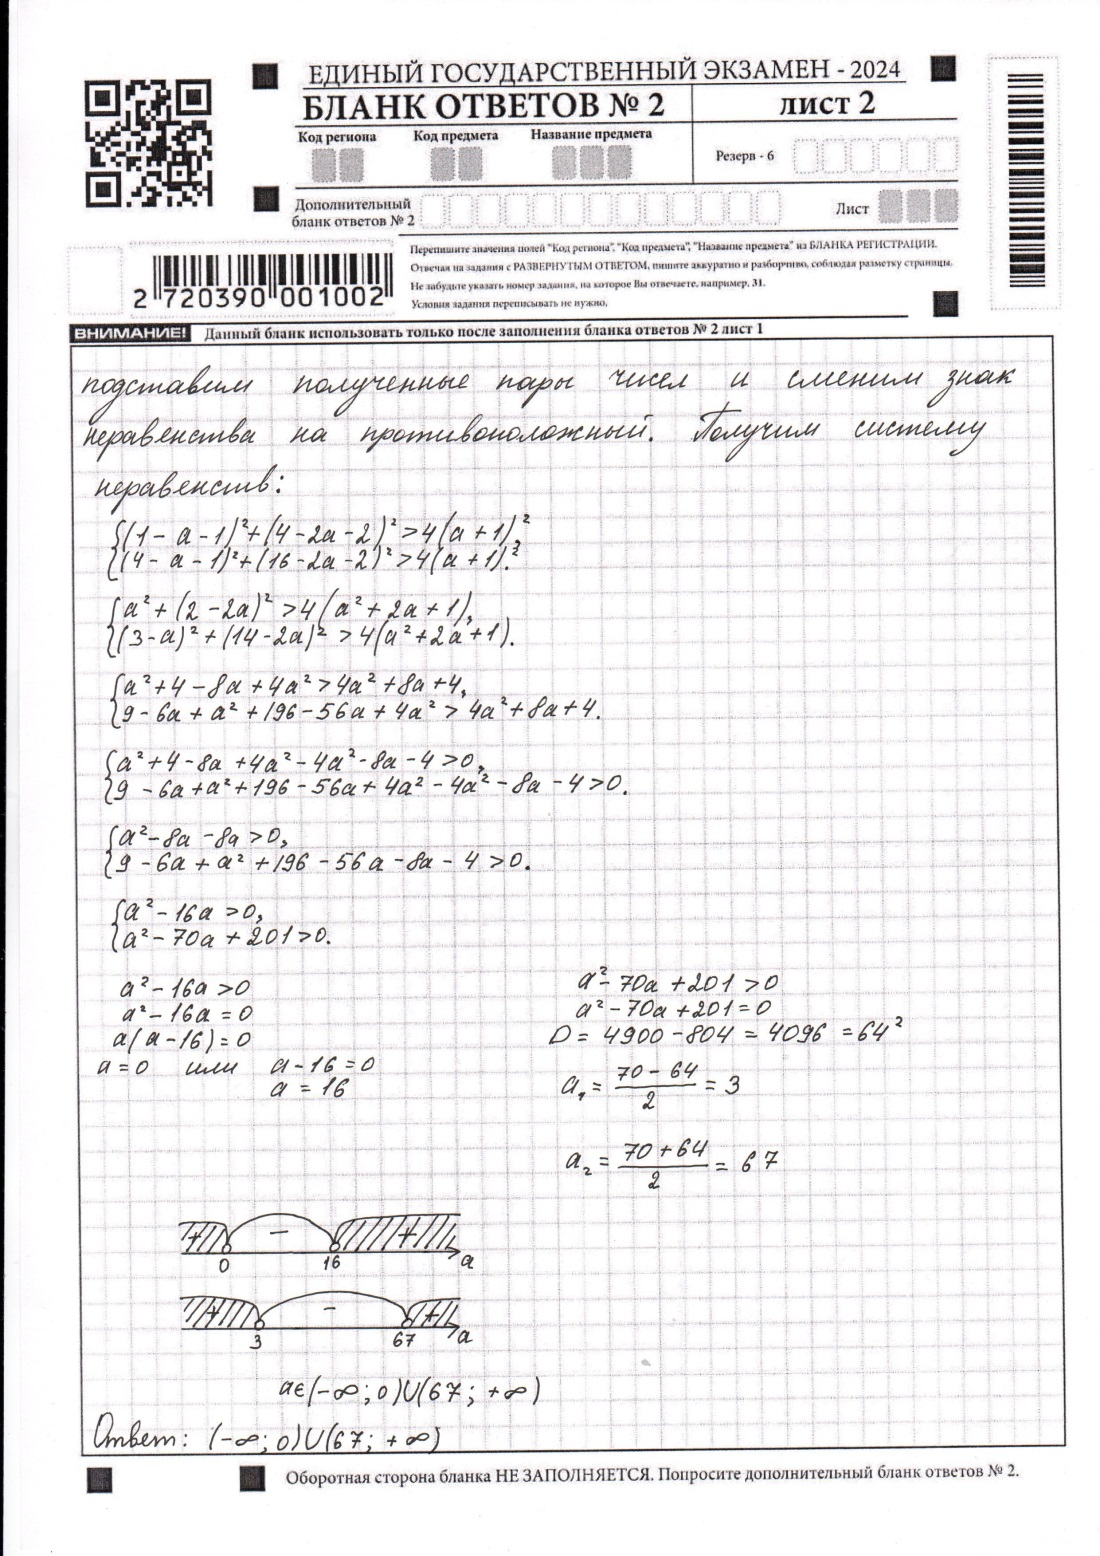 ЕДИНЫЙ ГОСУДАРСТВЕННЫЙ ЭКЗАМЕН - 2024
БЛАНК ОТВЕТОВ № 2
лист 2
Код региона
Код предмета
Название предмета
Резерв - 6
Дополнительный
бланк ответов № 2
Лист
Перепишите значения полей "Код региона", "Код предмета", "Название предмета" из БЛАНКА РЕГИСТРАЦИИ.
Отвечая на задания с РАЗВЕРНУТЫМ ОТВЕТОМ, пишите аккуратно и разборчиво, соблюдая разметку страницы.
Не забудьте указать номер задания, на которое Вы отвечаете, например, 31.
Условия задания переписывать не нужно.
2 720390 001002
ВНИМАНИЕ! Данный бланк использовать только после заполнения бланка ответов № 2 лист 1
подставим полученные пары чисел и сменим знак
неравенства на противоположный. Получим систему
неравенств:
{(1 - a - 1)² + (4 - 2a - 2)² > 4(a + 1)²,
{(4 - a - 1)² + (16 - 2a - 2)² > 4(a + 1)².
{a² + (2 - 2a)² > 4(a² + 2a + 1),
{(3 - a)² + (14 - 2a)² > 4(a² + 2a + 1).
{a² + 4 - 8a + 4a² > 4a² + 8a + 4,
{9 - 6a + a² + 196 - 56a + 4a² > 4a² + 8a + 4.
{a² + 4 - 8a + 4a² - 4a² - 8a - 4 > 0,
{9 - 6a + a² + 196 - 56a + 4a² - 4a² - 8a - 4 > 0.
{a² - 8a - 8a > 0,
{9 - 6a + a² + 196 - 56a - 8a - 4 > 0.
{a² - 16a > 0,
{a² - 70a + 201 > 0.
a² - 16a > 0
a² - 16a = 0
a(a - 16) = 0
a = 0 или a - 16 = 0
a = 16
a² - 70a + 201 > 0
a² - 70a + 201 = 0
D = 4900 - 804 = 4096 = 64²
a₁ = (70 - 64)/2 = 3
a₂ = (70 + 64)/2 = 67
+ - +
0 16 a
+ - +
3 67 a
a ∈ (-∞; 0) ∪ (67; +∞)
Ответ: (-∞; 0) ∪ (67; +∞)
Оборотная сторона бланка НЕ ЗАПОЛНЯЕТСЯ. Попросите дополнительный бланк ответов № 2.